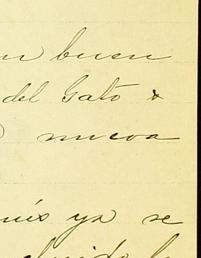 un buen
del Gato &
nueva
más ya se